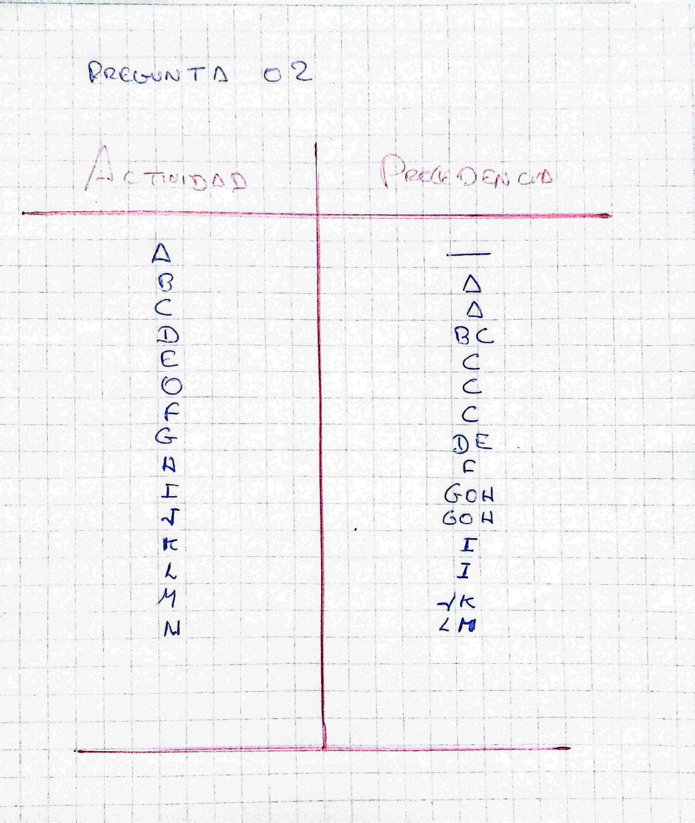 PREGUNTA 02
ACTIVIDAD PRECEDENCIA
A —
B A
C A
D BC
E C
O C
F C
G DE
H F
I GOH
J GOH
K I
L I
M JK
N LM